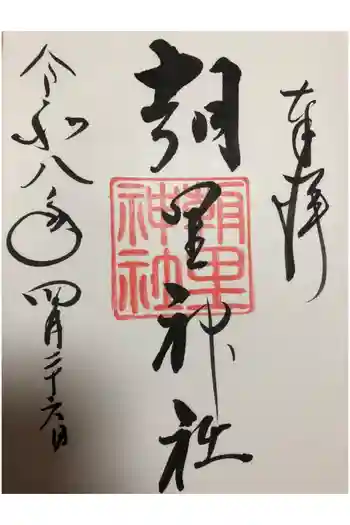 奉拝
朝里神社
朝里
神社
令和八年四月二十六日